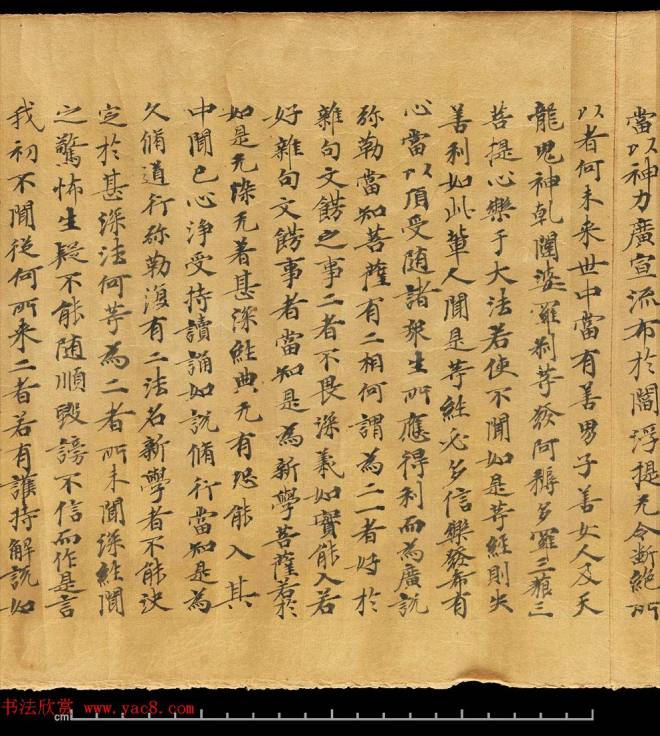 當以神力廣宣流布於閻浮提无令断絶所
以者何未来世中當有善男子善女人及天
龍鬼神乾闥婆羅刹等發阿耨多羅三藐三
菩提心樂于大法若使不聞如是等經則失
善利如此輩人聞是等經必多信樂發希有
心當以頂受随諸衆生所應得利而為廣說
弥勒當知菩薩有二相何謂為二一者好於
雜句文餝之事二者不畏深義如實能入若
好雜句文餝事者當知是為新學菩薩若於
如是无染无著甚深經典无有恐能入其
中聞已心淨受持讀誦如說脩行當知是為
久脩道行弥勒復有二法名新學者不能決
定於甚深法何等為二一者所未聞深經聞
之驚怖生疑不能随順毀謗不信而作是言
我初不聞從何所来二者若有護持解說如
书法欣赏
www.yac8.com
cm